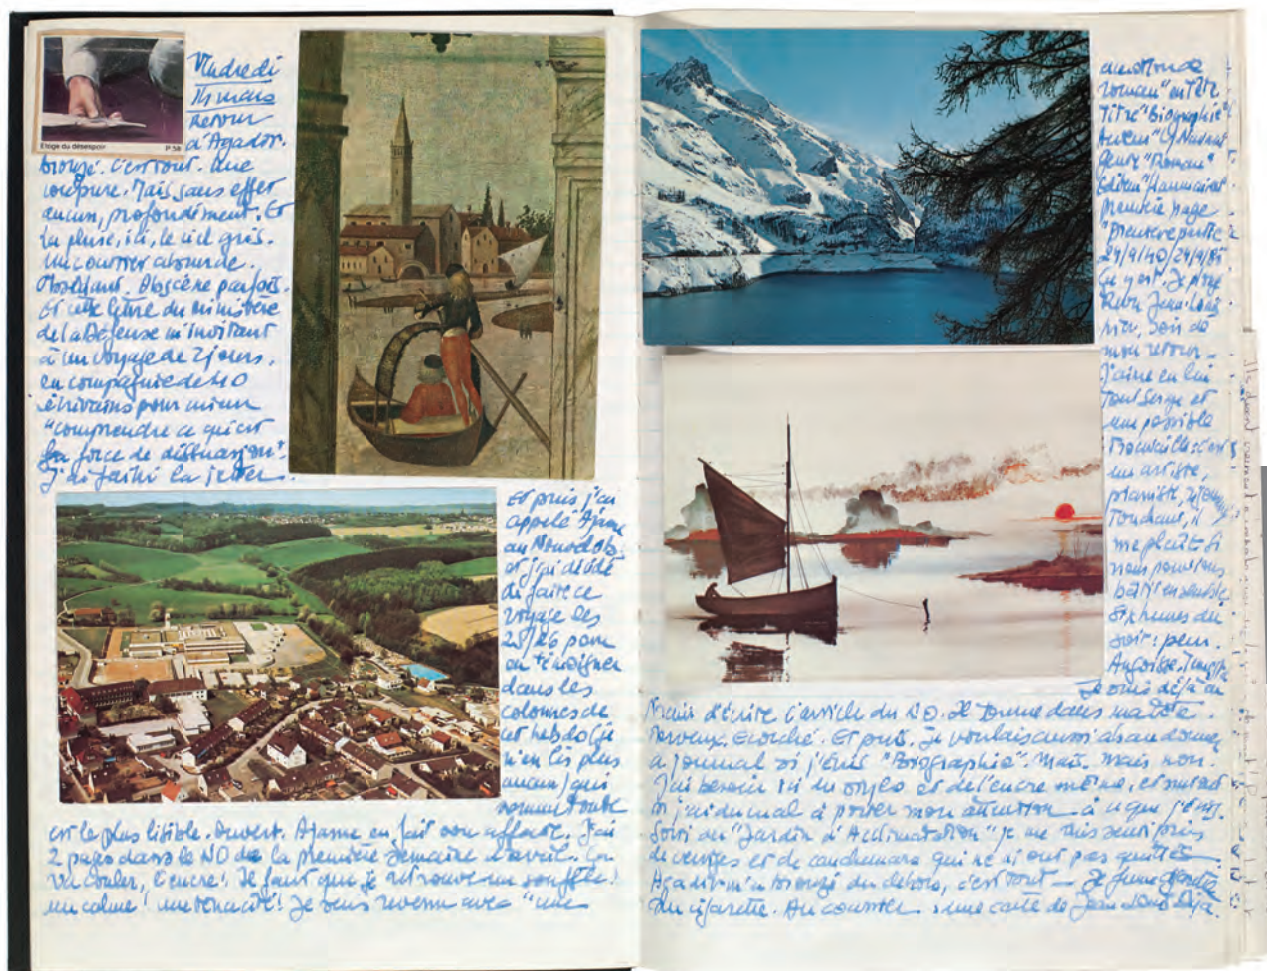 Eloge du désespoir P.58
Vendredi
15 mars
Retour
d'Agadir.
bronzé. C'est tout. Une
coupure. Mais sans effet
aucun, profondément. Et
la pluie, ici, le ciel gris.
Un courrier absurde.
Obscène parfois.
Et cette lettre du ministère
de la Défense m'invitant
à un voyage de 2 jours,
en compagnie de 40
écrivains pour mieux
"comprendre ce qu'est
la force de dissuasion".
J'ai failli la jeter.
Et puis j'ai
appelé Ajame
au Nouvel Obs
et j'ai décidé
de faire ce
voyage les
25/26 pour
en témoigner
dans les
colonnes de
cet hebdo (je
n'en lis plus
aucun) qui
sans doute
est le plus lisible. Ouvert. Ajame en fait son affaire. J'ai
2 pages dans le NO de la première semaine d'avril. Ça
va couler, l'encre! Il faut que je retrouve un souffle!
un calme! une ténacité! Je suis revenu avec "une
roman" en tête
Titre "Biographie"
Auteur "Y. Navarre"
Genre "Roman"
Editeur "Flammarion"
première page
"Première partie
24/9/40 / 24/9/85"
ça y est. Je
Revu Jean-Louis
hier, soir de
mon retour.
J'aime en lui
tout Serge et
un possible
c'est
un artiste,
pianiste,
Touchant, il
me plaît. Si
nous pouvions
bâtir ensemble
6 heures du
soir: peur.
Angoisse.
Je suis déjà en
train d'écrire l'article du NO. Il tourne dans ma tête.
Nerveux. Ecorché. Et puis. Je voulais aussi abandonner
ce journal si j'écris "Biographie". Mais. Mais non.
J'ai besoin ici du stylo et de l'encre même, et surtout
si j'ai du mal à porter mon attention à ce que j'écris.
Sorti du "Jardin d'Acclimatation" je me suis senti pris
de vertiges et de cauchemars qui ne m'ont pas quitté.
Agadir m'a bronzé du dehors, c'est tout — Je fume
cigarette. Au courrier: une carte de Jean-Louis